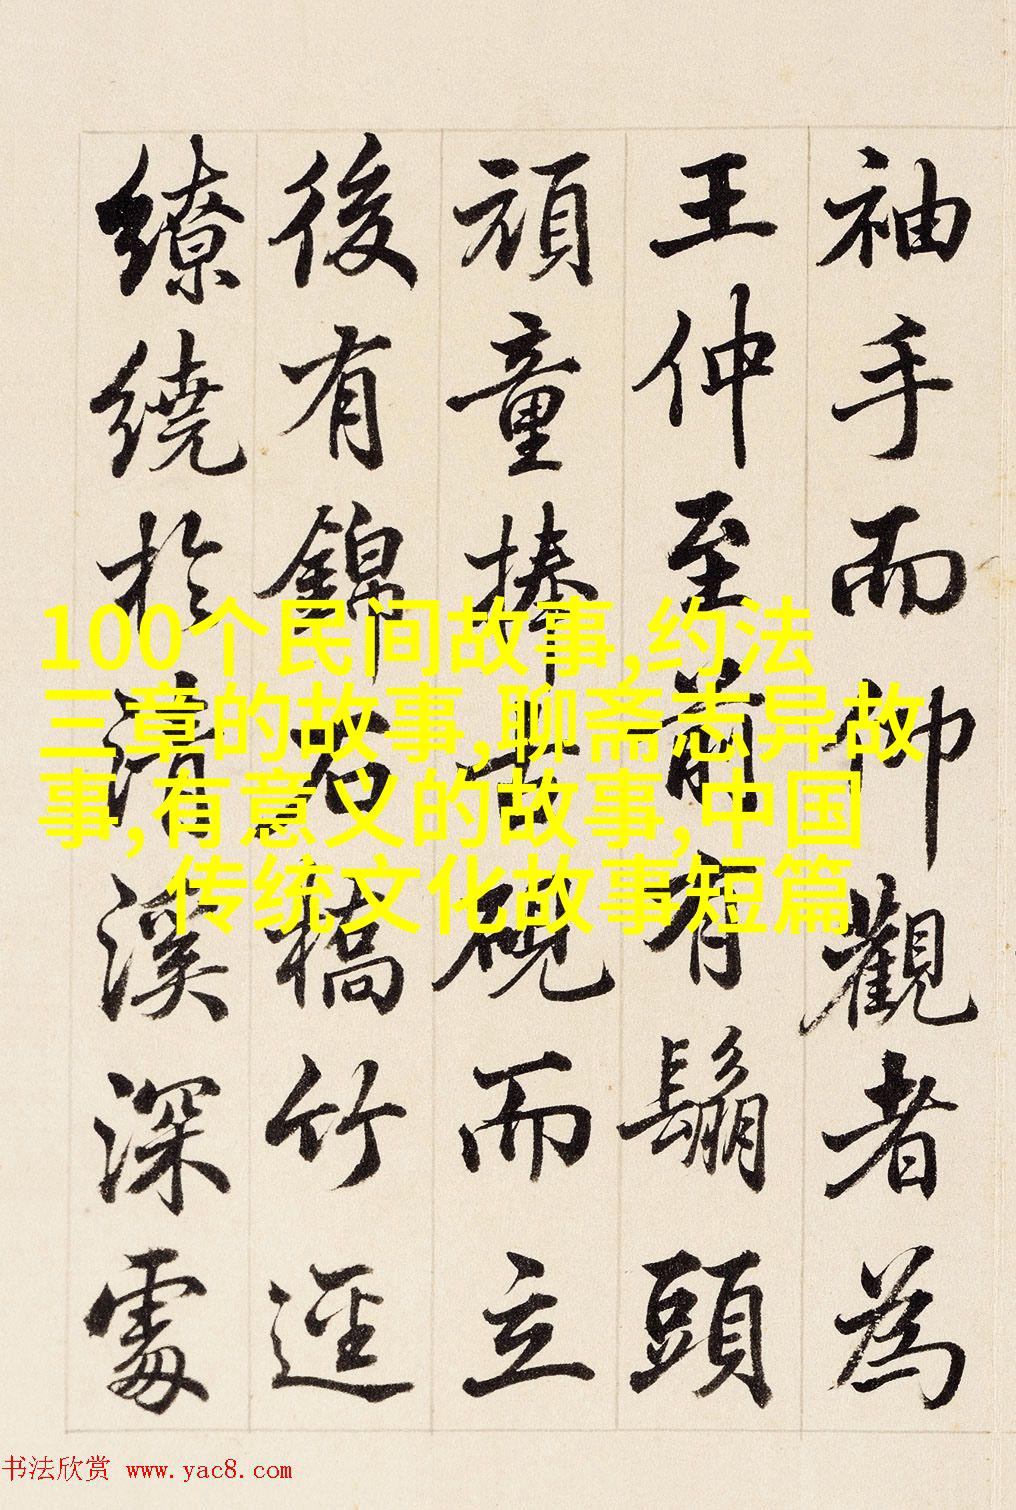 袖手而仰觀者為
王仲至前有鬅頭
頑童捧古硯而立
後有錦石橋竹逕
繚繞於清溪深處
100个民间故事,约法
三章的故事,聊斋志异故
事,有意义的故事,中国
传统文化故事短篇
书法欣赏 www.yac8.com